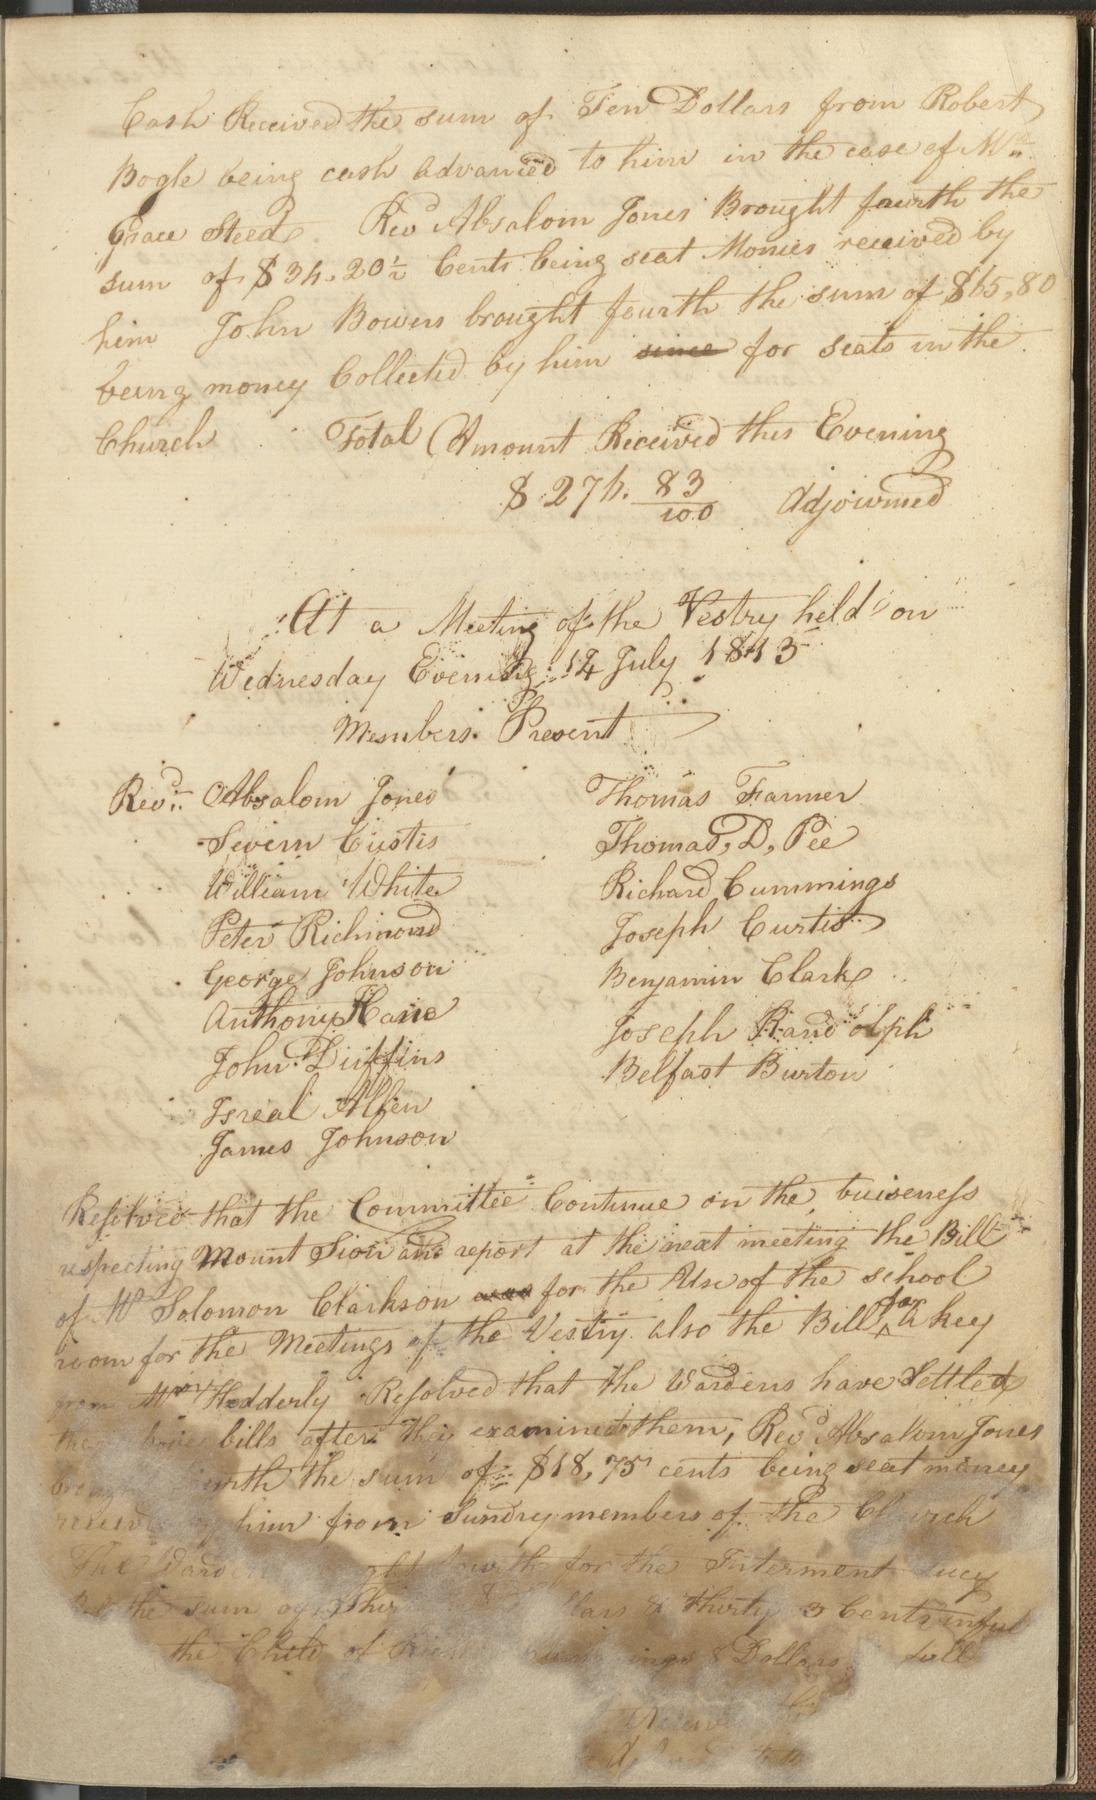 Cash Received the sum of Ten Dollars from Robert
Bogle being cash advanced to him in the case of Mrs
Grace Steed. Revd Absalom Jones Brought fourth the
sum of $34.20½ Cents being seat Monies received by
him John Bowers brought fourth the sum of $65,80
being money Collected by him since for seats in the
Church Total Amount Received this Evening
$ 274. 83/100 Adjourned
At a Meeting of the Vestry held on
Wednesday Evening 14 July 1813
Members Present
Revd. Absalom Jones
Severn Custis
William White
Peter Richmond
George Johnson
Anthony
John Duffins
Isreal Allen
James Johnson
Thomas Farmer
Thomas, D, Pee
Richard Cummings
Joseph Curtis
Benjamin Clark
Joseph Randolph
Belfast Burton
Resolved that the Committee Continue on the buiseness
respecting Mount Sion and report at the next meeting the Bill
of Mr Solomon Clarkson for the Use of the school
room for the Meetings of the Vestry also the Bill for a key
from Mr Hedderly Resolved that the Wardens have Settled
bills after they examined them, Revd Absalom Jones
the sum of $18,75 cents being seat money
him from Sundry members of the Church
The for the Interment Lucy
the sum of & thirty 3 Cents in full
the Child of Dollars full